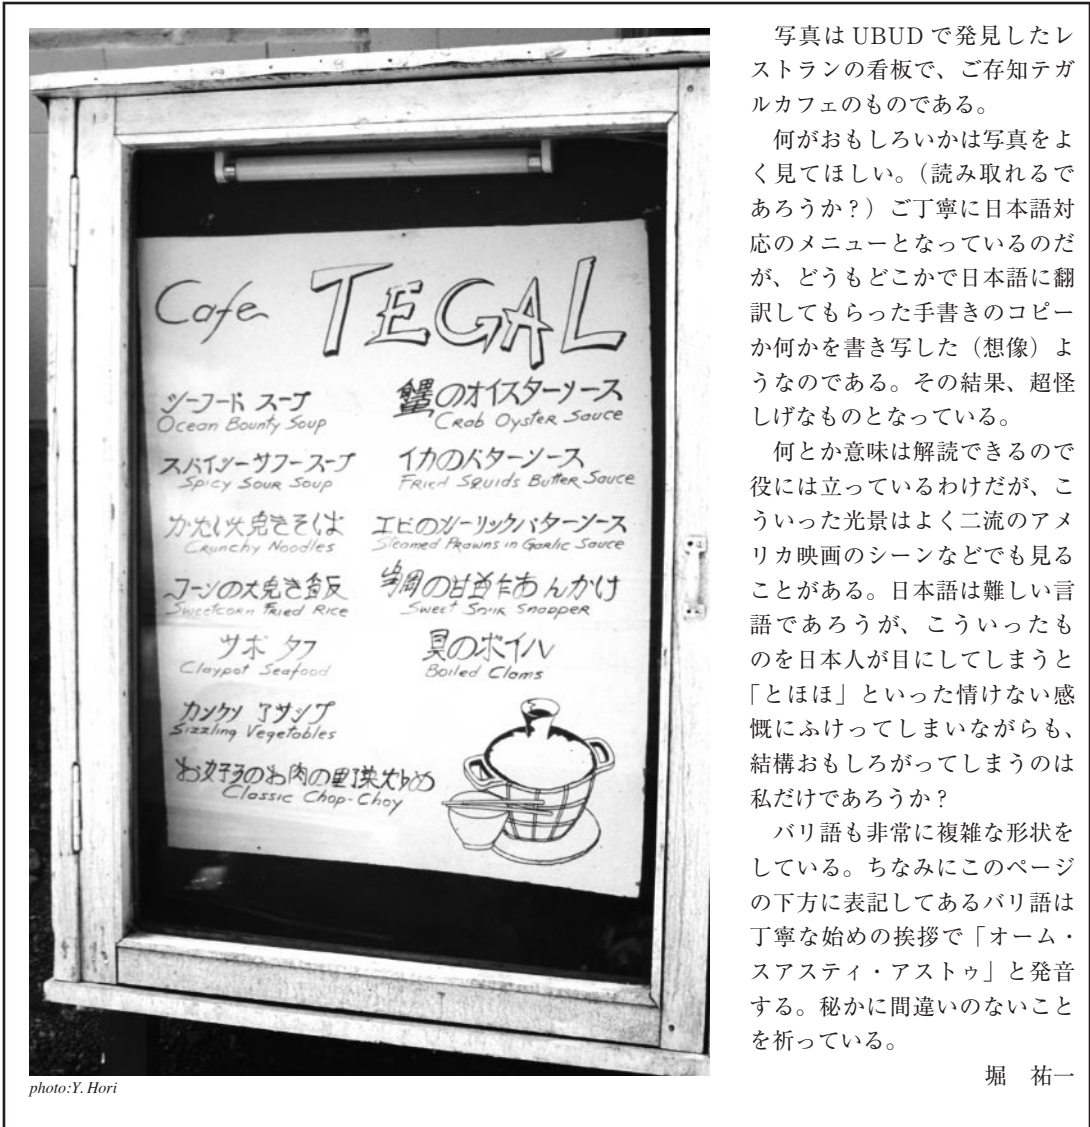 Cafe TEGAL
シーフード スープ
Ocean Bounty Soup
スパイシーサワースープ
Spicy Sour Soup
かたい火尭きそば
Crunchy Noodles
コーンの火尭き飯
Sweetcorn Fried Rice
サポ タフ
Claypot Seafood
カンケン アサップ
Sizzling Vegetables
お好みのお肉の野菜火炒め
Classic Chop-Choy
のオイスターソース
Crab Oyster Sauce
イカのバターソース
Fried Squids Butter Sauce
エビのガーリックバターソース
Steamed Prawns in Garlic Sauce
の甘酢あんかけ
Sweet Sour Snapper
貝のボイル
Boiled Clams
photo:Y. Hori
写真は UBUD で発見したレ
ストランの看板で、ご存知テガ
ルカフェのものである。
何がおもしろいかは写真をよ
く見てほしい。（読み取れるで
あろうか？）ご丁寧に日本語対
応のメニューとなっているのだ
が、どうもどこかで日本語に翻
訳してもらった手書きのコピー
か何かを書き写した（想像）よ
うなのである。その結果、超怪
しげなものとなっている。
何とか意味は解読できるので
役には立っているわけだが、こ
ういった光景はよく二流のアメ
リカ映画のシーンなどでも見る
ことがある。日本語は難しい言
語であろうが、こういったも
のを日本人が目にしてしまうと
「とほほ」といった情けない感
慨にふけってしまいながらも、
結構おもしろがってしまうのは
私だけであろうか？
バリ語も非常に複雑な形状を
している。ちなみにこのページ
の下方に表記してあるバリ語は
丁寧な始めの挨拶で「オーム・
スアスティ・アストゥ」と発音
する。秘かに間違いのないこと
を祈っている。
堀　祐一